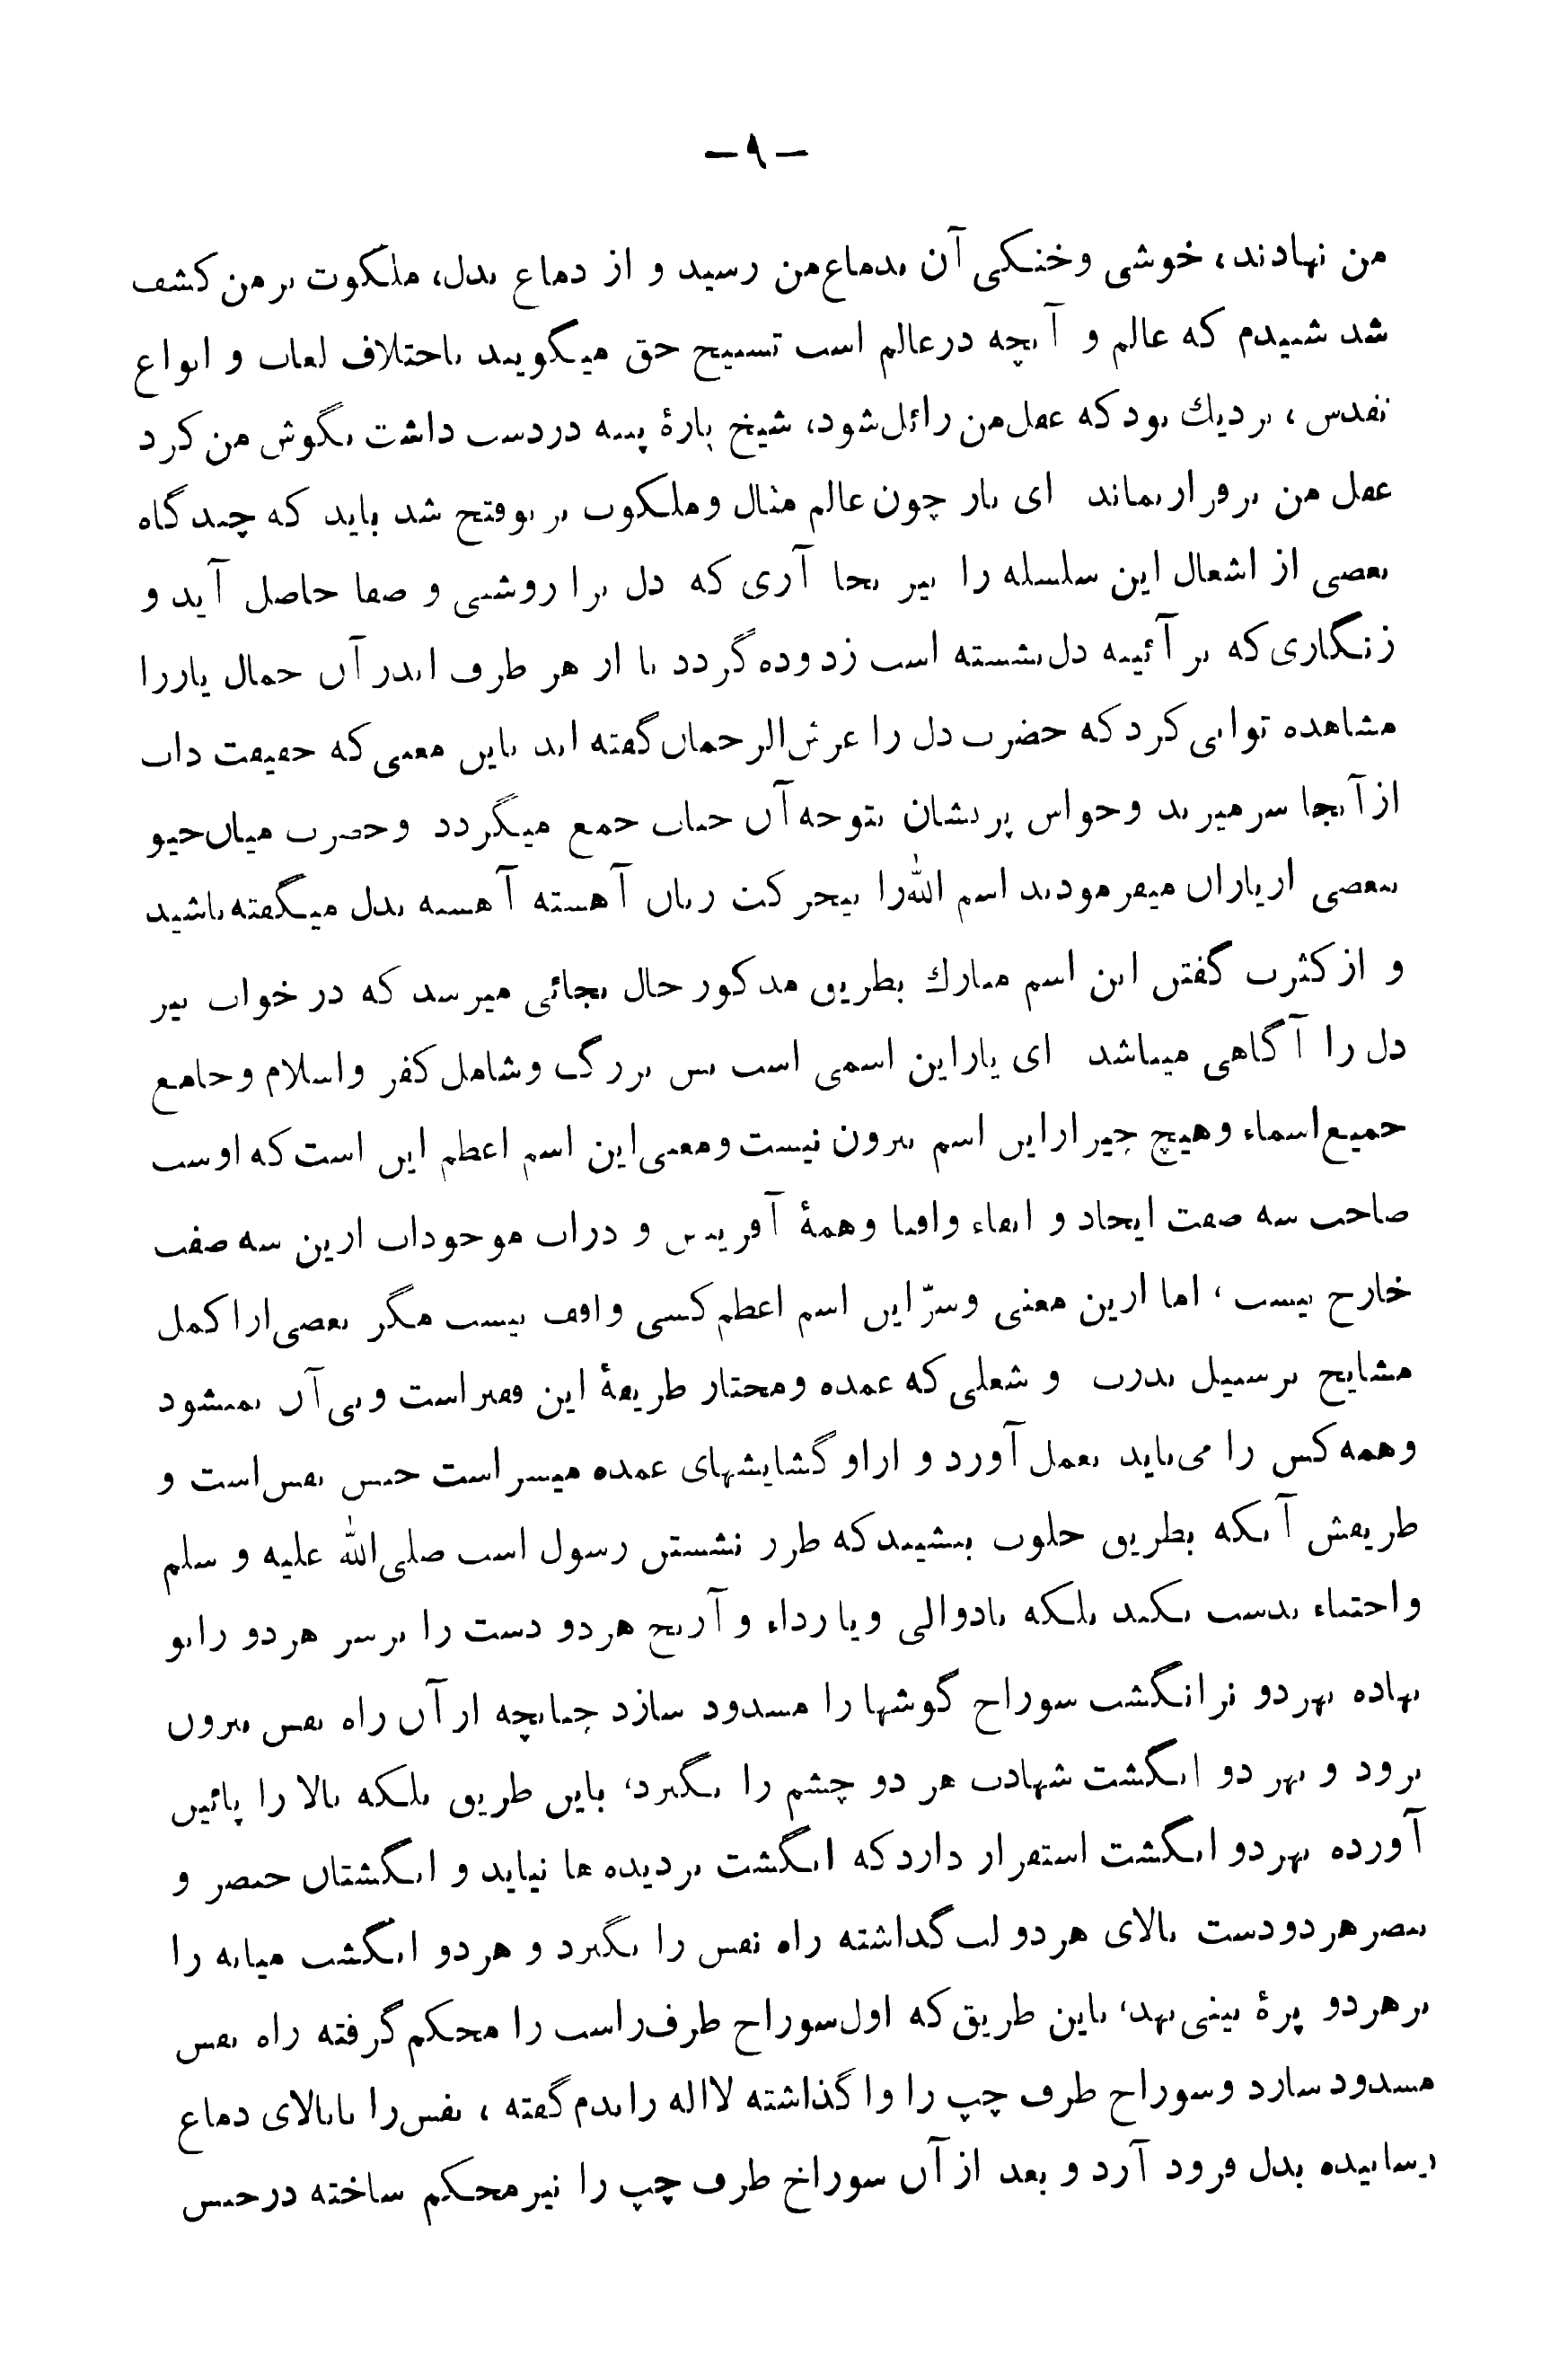 -۹-
من نهادند، خوشی وخنکی آن بدماغ‌من رسید و از دماغ بدل، ملکوت بر من کشف
شد شنیدم که عالم و آنچه درعالم است تسبیح حق میگویند باختلاف لغات و انواع
تقدس، نزدیك بود که عقل‌من زائل‌شود، شیخ پارۀ پنبه دردست داشت بگوش من کرد
عقل من برقرار بماند ای یار چون عالم مثال وملکوت بر توفتح شد باید که چند گاه
بعضی از اشغال این سلسله را نیز بجا آری که دل ترا روشنی و صفا حاصل آید و
زنگاری که بر آئینه دل‌نشسته است زدوده گردد تا از هر طرف اندر آن جمال یاررا
مشاهده توانی کرد که حضرت دل را عرش‌الرحمان گفته اند باین معنی که حقیقت ذات
از آنجا سرمیزند وحواس پریشان بتوجه آن جناب جمع میگردد وحضرت میان‌جیو
ببعضی ازیاران میفرمودند اسم الله‌را بیحرکت زبان آهسته آهسته بدل میگفته‌باشید
و از کثرت گفتن این اسم مبارك بطریق مذکور حال بجائی میرسد که در خواب نیز
دل را آگاهی میباشد ای یار این اسمی است بس بزرگ وشامل کفر واسلام وجامع
جمیع‌اسماء وهیچ چیز ازاین اسم بیرون نیست ومعنی‌این اسم اعظم این است که اوست
صاحب سه صفت ایجاد و ابقاء وافنا وهمۀ آفرینش و ذرات موجودات ازین سه صفت
خارج نیست، اما ازین معنی وسرّ این اسم اعظم کسی واقف نیست مگر بعضی‌ازا کمل
مشایخ برسبیل ندرت و شغلی که عمده ومختار طریقۀ این فقیر است وبی آن نمیشود
وهمه کس را می‌باید بعمل آورد و ازاو گشایشهای عمده میسر است حبس نفس‌است و
طریقش آنکه بطریق خلوت بنشیند که طرز نشستن رسول است صلی‌الله علیه و سلم
واحتباء بدست نکند بلکه بادوالی ویا رداء و آرنج هر دو دست را برسر هر دو زانو
نهاده بهر دو نر انگشت سوراخ گوشها را مسدود سازد چنانچه از آن راه نفس بیرون
نرود و بهر دو انگشت شهادت هر دو چشم را بگیرد، باین طریق بلکه بالا را پائین
آورده بهر دو انگشت استقرار دارد که انگشت بردیده ها نیاید و انگشتان خنصر و
بنصر هر دودست بالای هر دو لب گذاشته راه نفس را بگیرد و هر دو انگشت میانه را
بر هر دو پرۀ بینی نهد، باین طریق که اول‌سوراخ طرف‌راست را محکم گرفته راه نفس
مسدود سازد وسوراخ طرف چپ را وا گذاشته لااله رابدم گفته، نفس‌را تابالای دماغ
رسانیده بدل فرود آرد و بعد از آن سوراخ طرف چپ را نیز محکم ساخته درحبس